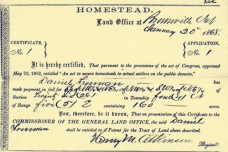 HOMESTEAD.
Land Office at Brownville Neb
January 20th 1868.
CERTIFICATE,
No. 1
APPLICATION,
No. 1
It is hereby certified, That pursuant to the provisions of the act of Congress, approved
May 20, 1862, entitled "An act to secure homesteads to actual settlers on the public domain,"
Daniel Freeman has
made payment in full for
of Section
in Township four (4) N
of Range five (5) E containing 160 acres.
Now, therefore, be it known, That on presentation of this Certificate to the
COMMISSIONER OF THE GENERAL LAND OFFICE, the said Daniel
Freeman
shall be entitled to a Patent for the Tract of Land above described.
Henry M. Atkinson
Register